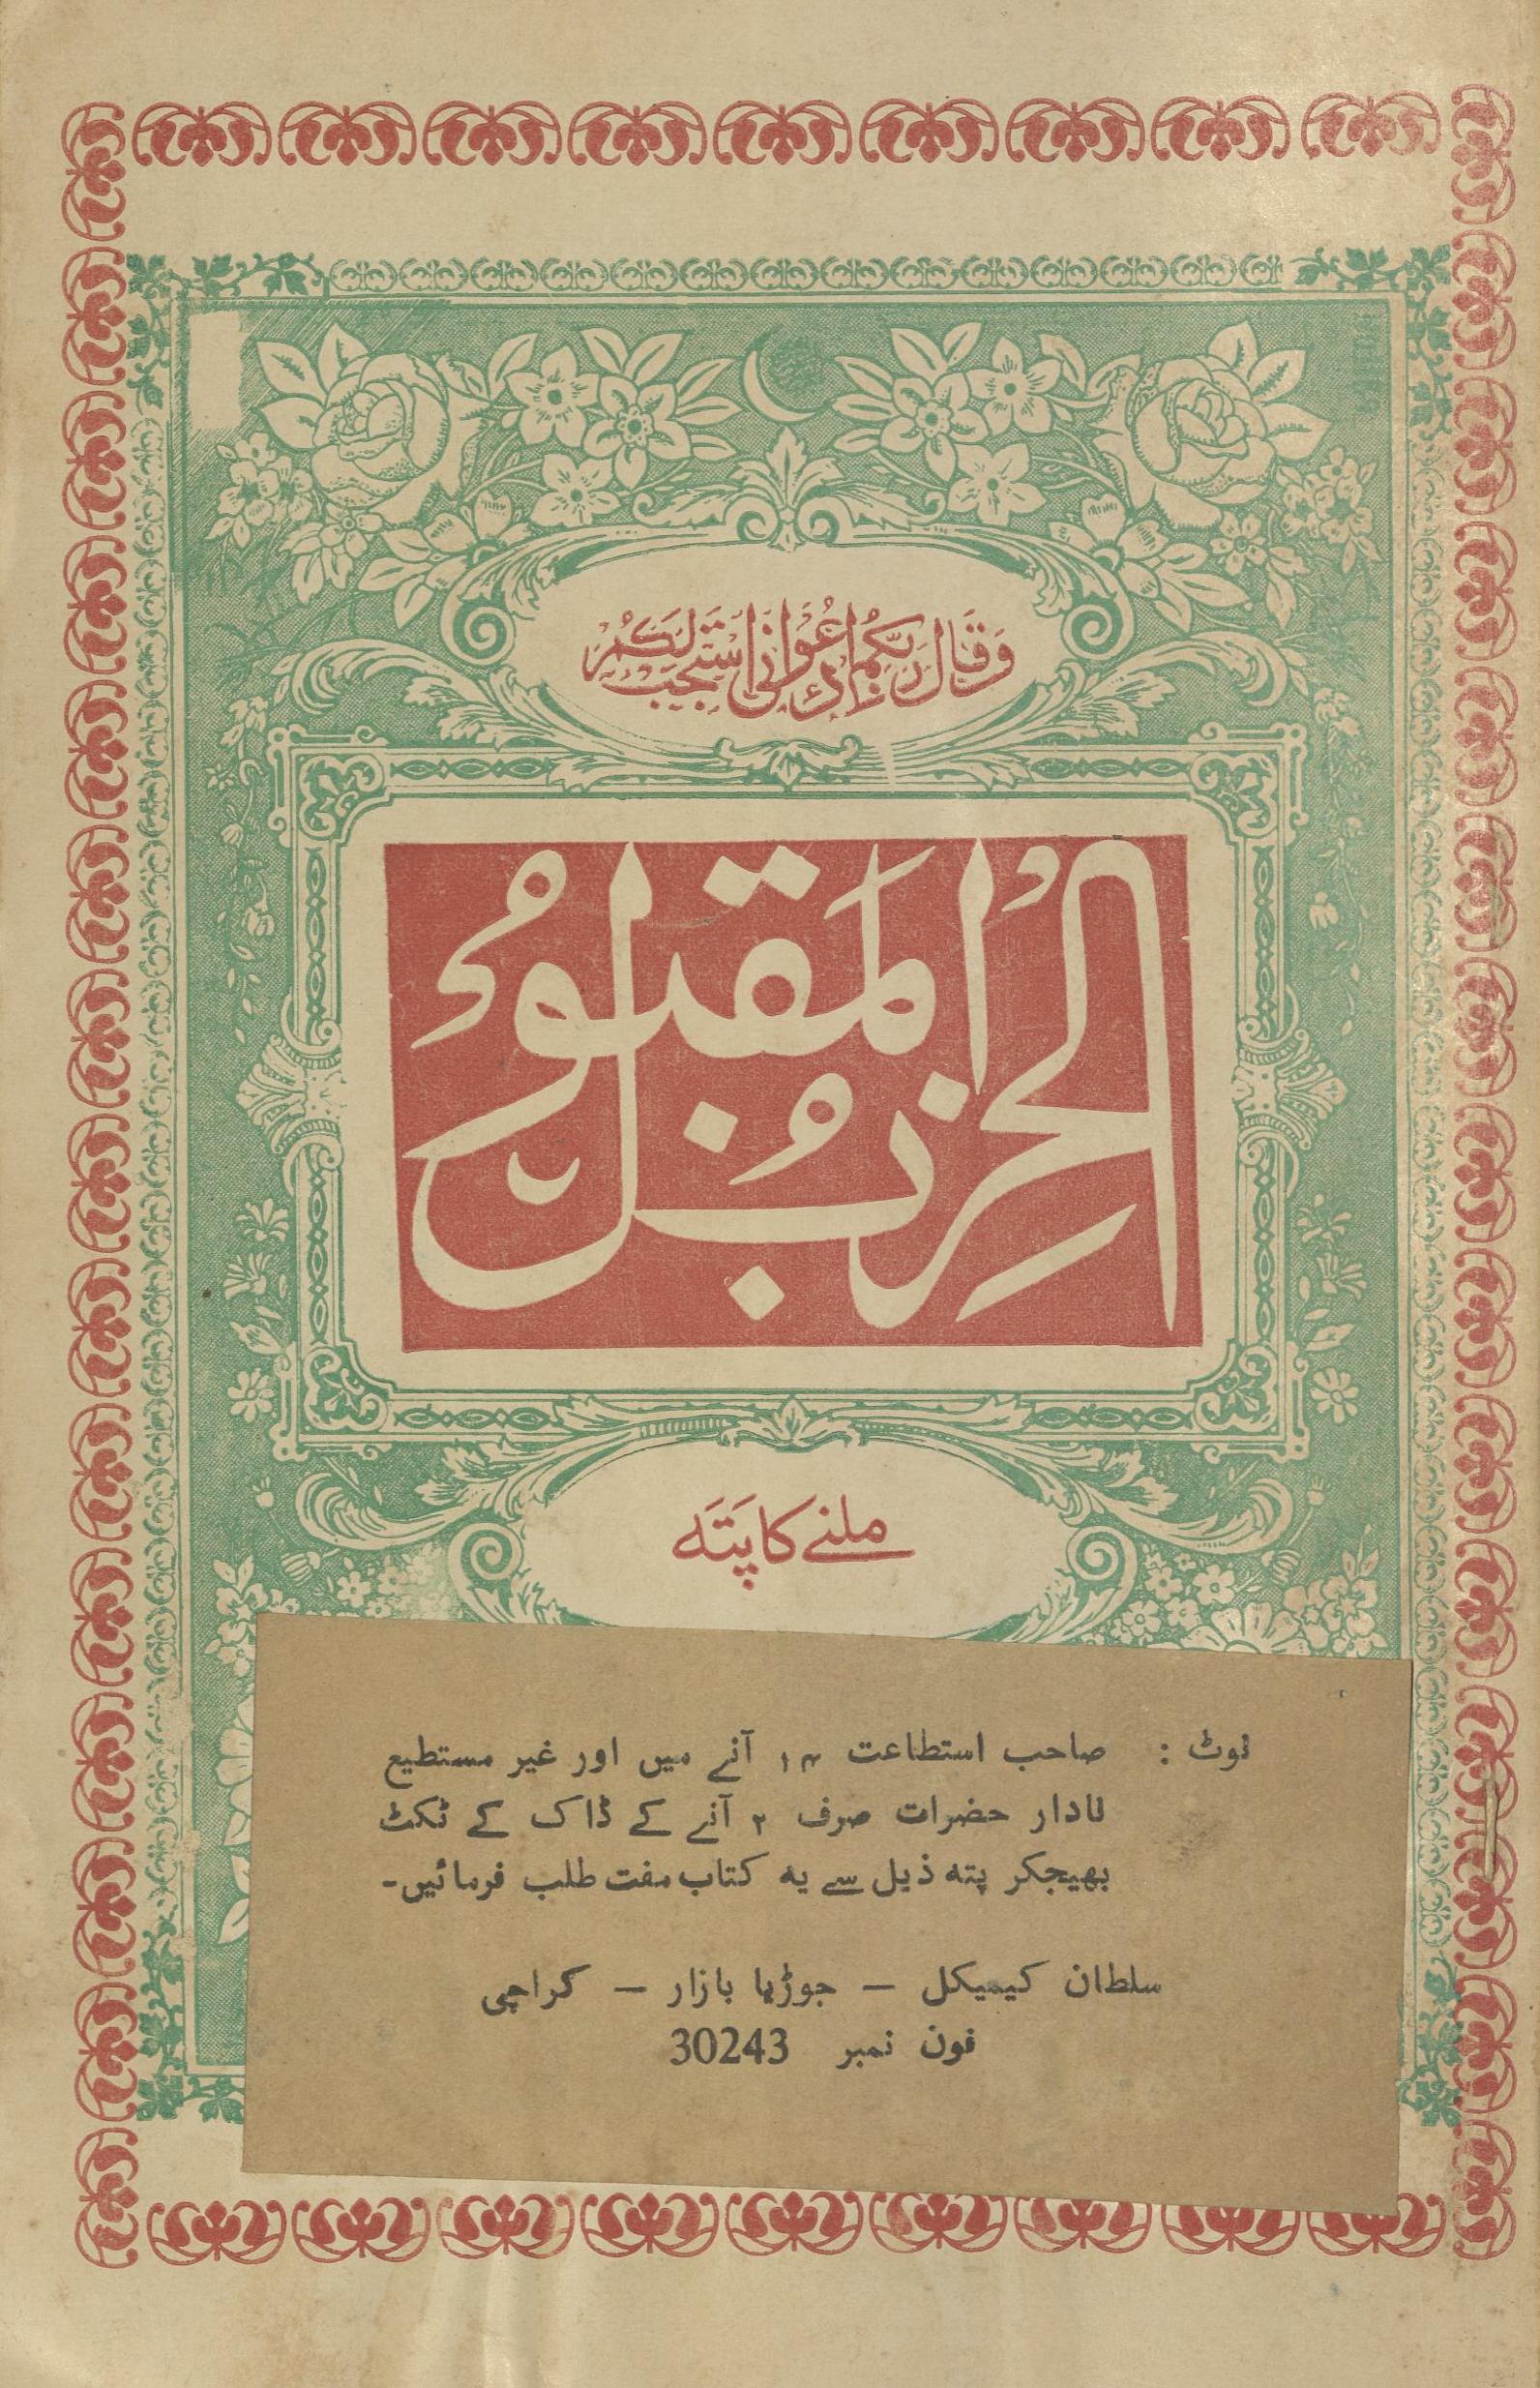 وَقَالَ رَبُّكُمُ ادْعُوْنِیْ اَسْتَجِبْ لَكُمْ
اَلْحِزْبُ الْمَقْبُوْلُ
ملنے کا پَتَہ
نوٹ : صاحب استطاعت ۱۴ آنے میں اور غیر مستطیع
نادار حضرات صرف ۲ آنے کے ڈاک کے ٹکٹ
بھیجکر پتہ ذیل سے یہ کتاب مفت طلب فرمائیں۔
سلطان کیمیکل – جوڑیا بازار – کراچی
فون نمبر 30243